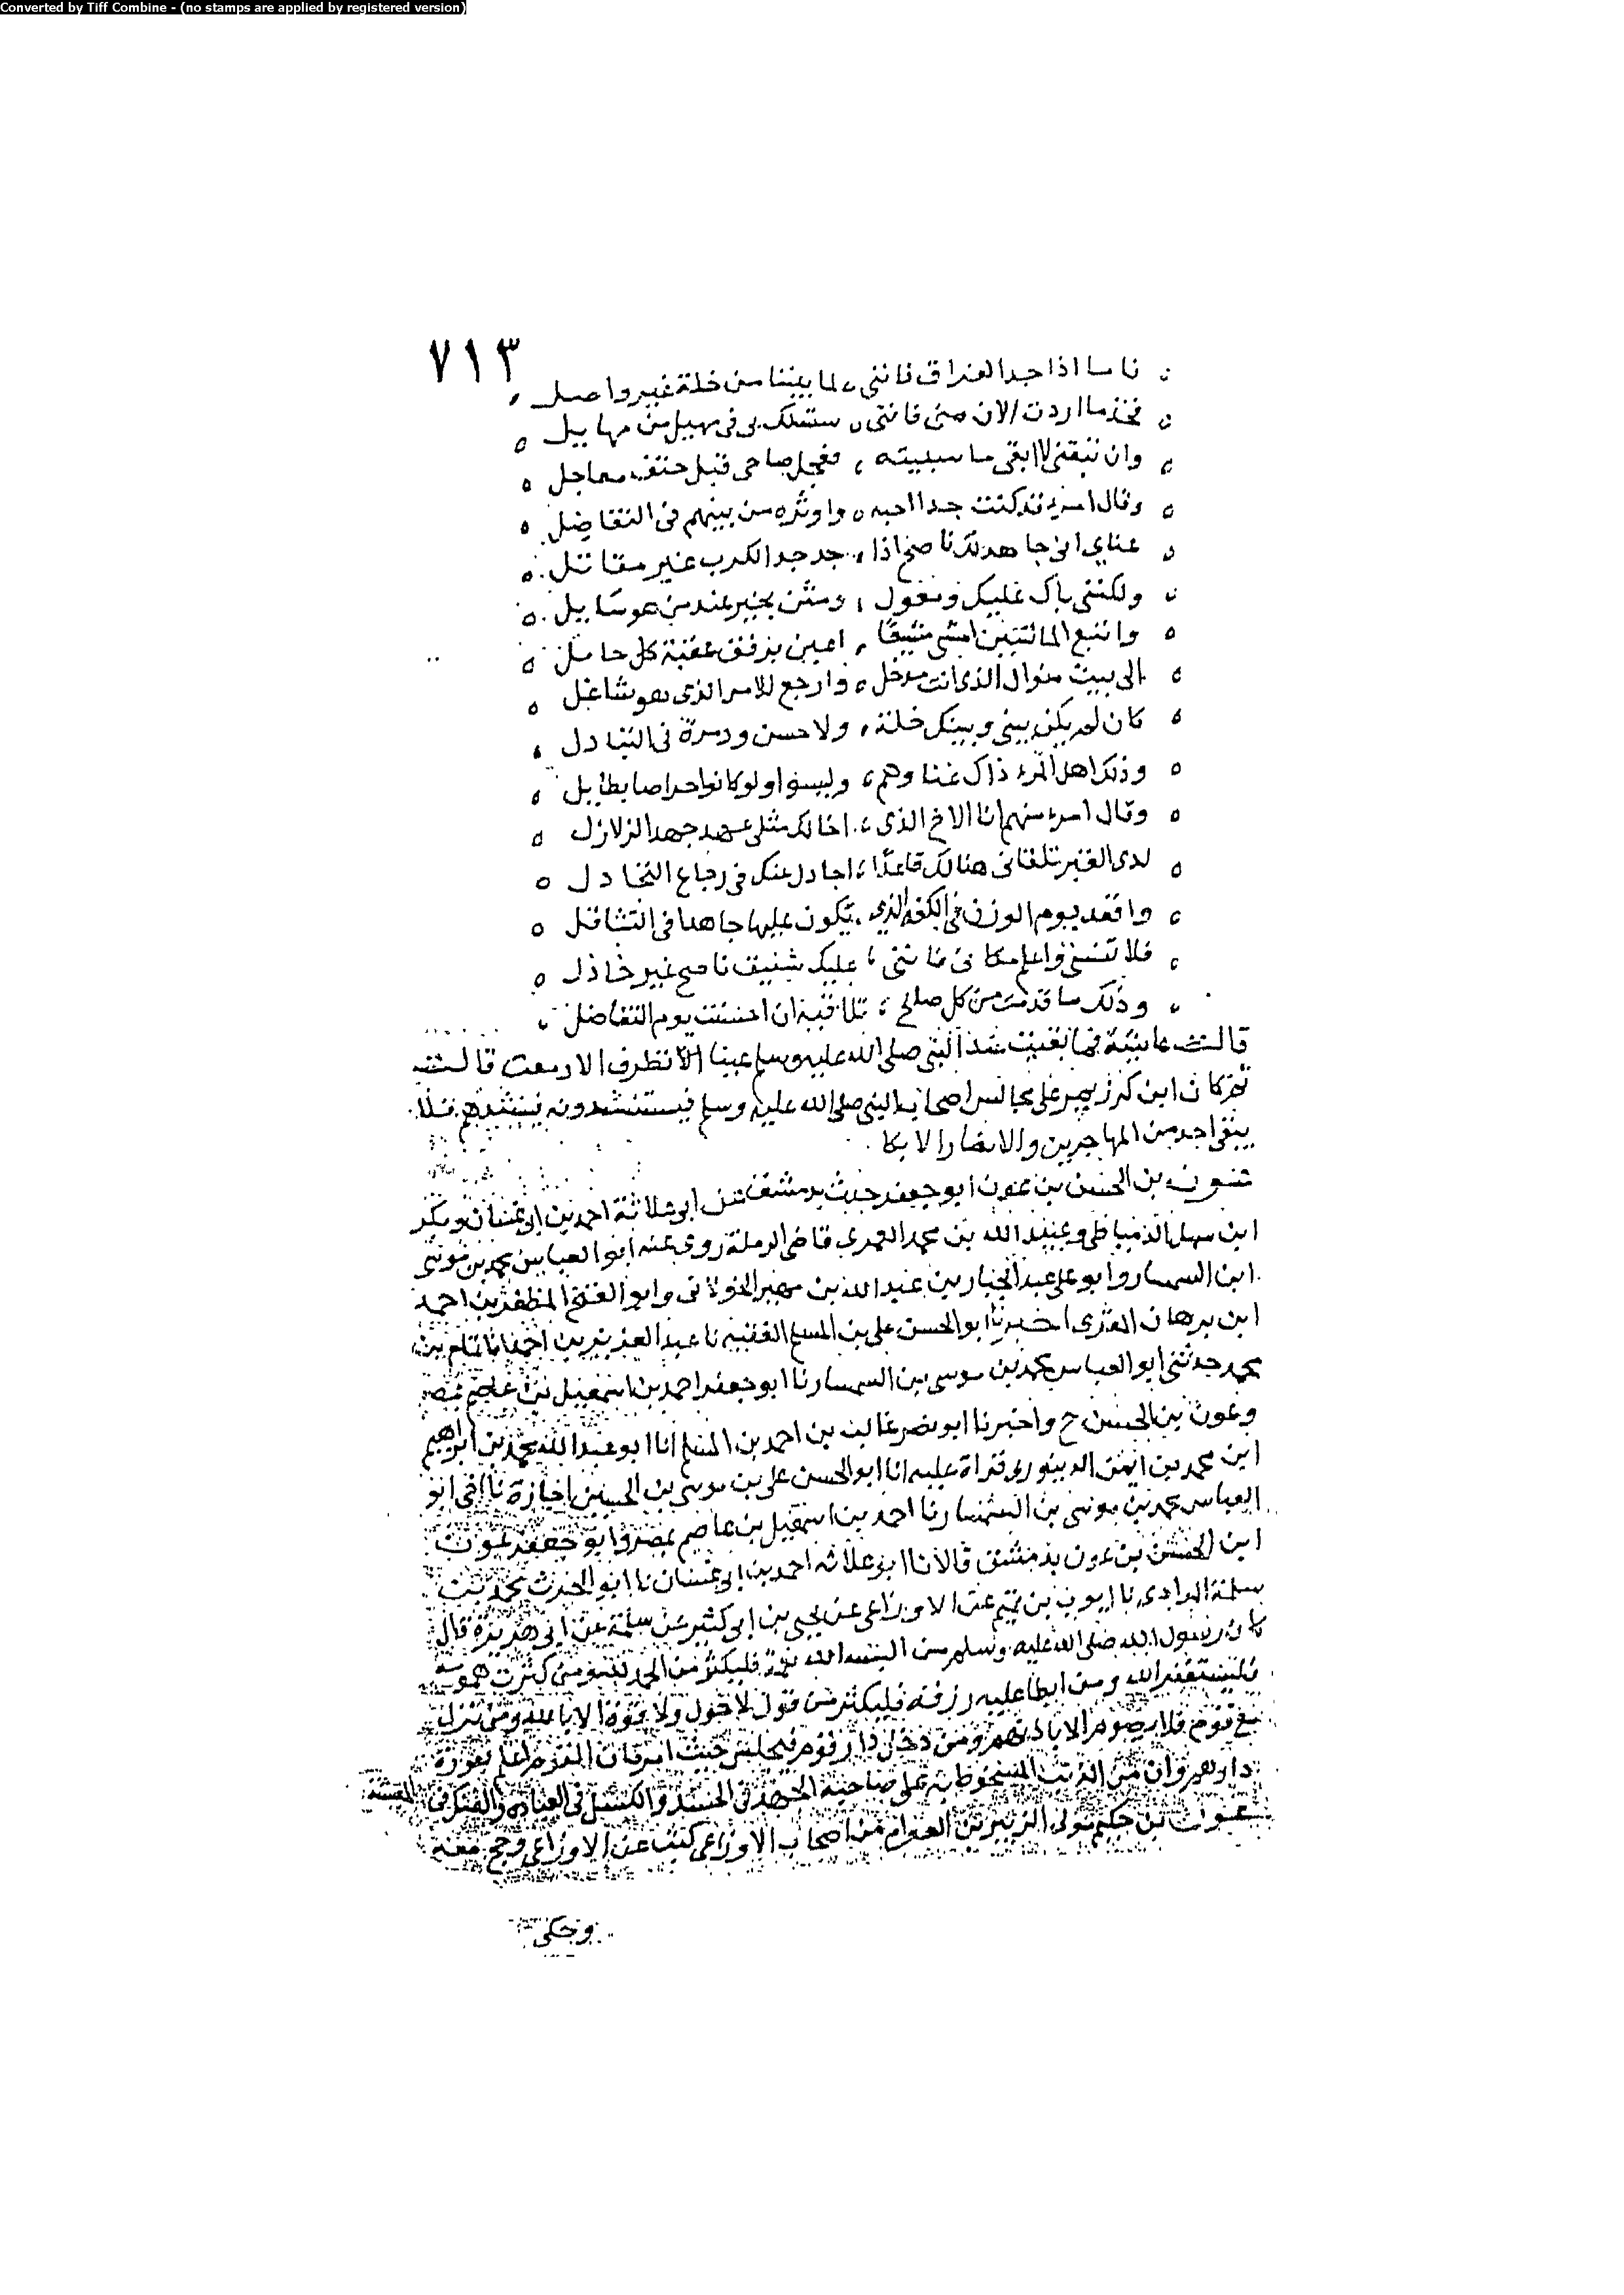 Converted by Tiff Combine - (no stamps are applied by registered version)
٧١٣
فاما اذا جد الفراق فانني ، لما بيننا من خلة غير واصل
فخذ ما اردت الان مني فانني ، ستسلك بي في مهيل من مهايل
وان تبقني لا ابقى ما سبيته ، فعجل صاحى قبل حتف معاجل
وقال امرء قد كنت جدا احبه ، واوثره من بينهم في التفاضل
عناي اني جاهد لك ناصح اذا ، جد جد الكرب غير مقاتل
ولكنني باك عليك ومعول ، ومثن بخير عند من هو سايل
واتبع الماشين امشي مشيعا ، اعين برفق عقبة كل حامل
الى بيت مثواك الذي انت مدخل ، وارجع للامر الذي هو شاغل
كان لم يكن بيني وبينك خلة ، ولا حسن ود مرة في التبادل
وذلك اهل المرء ذاك غناوهم ، وليسوا ولو كانوا حراصا بطايل
وقال امرء منهم انا الاخ الذي ، اخالك مثلي عند جهد الزلازل
لدى القبر تلقاني هنالك قاعدا ، اجادل عنك في رجاع التجادل
واقعد يوم الوزن في الكفة الذي ، تكون عليها جاهدا في التثاقل
فلا تنسني واعلم مكاني فانني ، عليك شفيق ناصح غير خاذل
وذلك ما قدمت من كل صالح ، تلاقيه ان احسنت يوم التفاضل
قالت عايشة فما بقيت عند النبي صلى الله عليه وسلم عينا الا تطرف الا دمعت قالت
ثم كان ابن كرز يمر على مجالس اصحاب النبي صلى الله عليه وسلم فيستنشدونه فينشدهم فلا
يبقى احد من المهاجرين والانصار الا بكا
عون بن الحسن بن عون ابو جعفر حدث بدمشق عن ابي علاثة احمد بن ابي غسان وبكر
ابن سهل الدمياطي وعبيد الله بن محمد العمري قاضي الرملة روى عنه ابو العباس محمد بن موسى
ابن السمسار وابو علي عبد الجبار بن عبد الله بن مهير الخولاني وابو الفتح المظفر بن احمد
ابن برهان المقرى اخبرنا ابو الحسن علي بن المسلم الفقيه نا عبد العزيز بن احمد انا تمام بن
محمد حدثني ابو العباس محمد بن موسى بن السمسار نا ابو جعفر احمد بن اسمعيل بن عاصم بمصر
وعون بن الحسن ح واخبرنا ابو نصر غالب بن احمد بن المسلم انا ابو عبد الله محمد بن ابراهيم
ابن محمد بن ايمن الدينوري قراة عليه انا ابو الحسن علي بن موسى بن الحسين اجازة نا اخي ابو
العباس محمد بن موسى بن السمسار نا احمد بن اسمعيل بن عاصم بمصر وابو جعفر عون
ابن الحسن بن عون بدمشق قالا نا ابو علاثه احمد بن ابي غسان نا ابو الحرث محمد بن
سلمة المرادي نا ايوب بن تميم عن الاوزاعي عن يحيى بن ابي كثير عن سلمة عن ابي هريرة قال
كان رسول الله صلى الله عليه وسلم من البسه الله نعمة فليكثر من الحمد لله ومن كثرت همومه
فليستغفر الله ومن ابطا عليه رزقه فليكثر من قول لا حول ولا قوة الا بالله ومن نزل
مع قوم فلا يصوم الا باذنهم ومن دخل دار قوم فيجلس حيث امر فان القوم اعلم بعورة
دارهم وان من الذنب المسخوط به على صاحبه الحقد في الحسد والكسل في العبادة والضنك في المعيشة
عون بن حكيم مولى الزبير بن العوام من اصحاب الاوزاعي كتب عن الاوزاعي وحج معه
وحكى